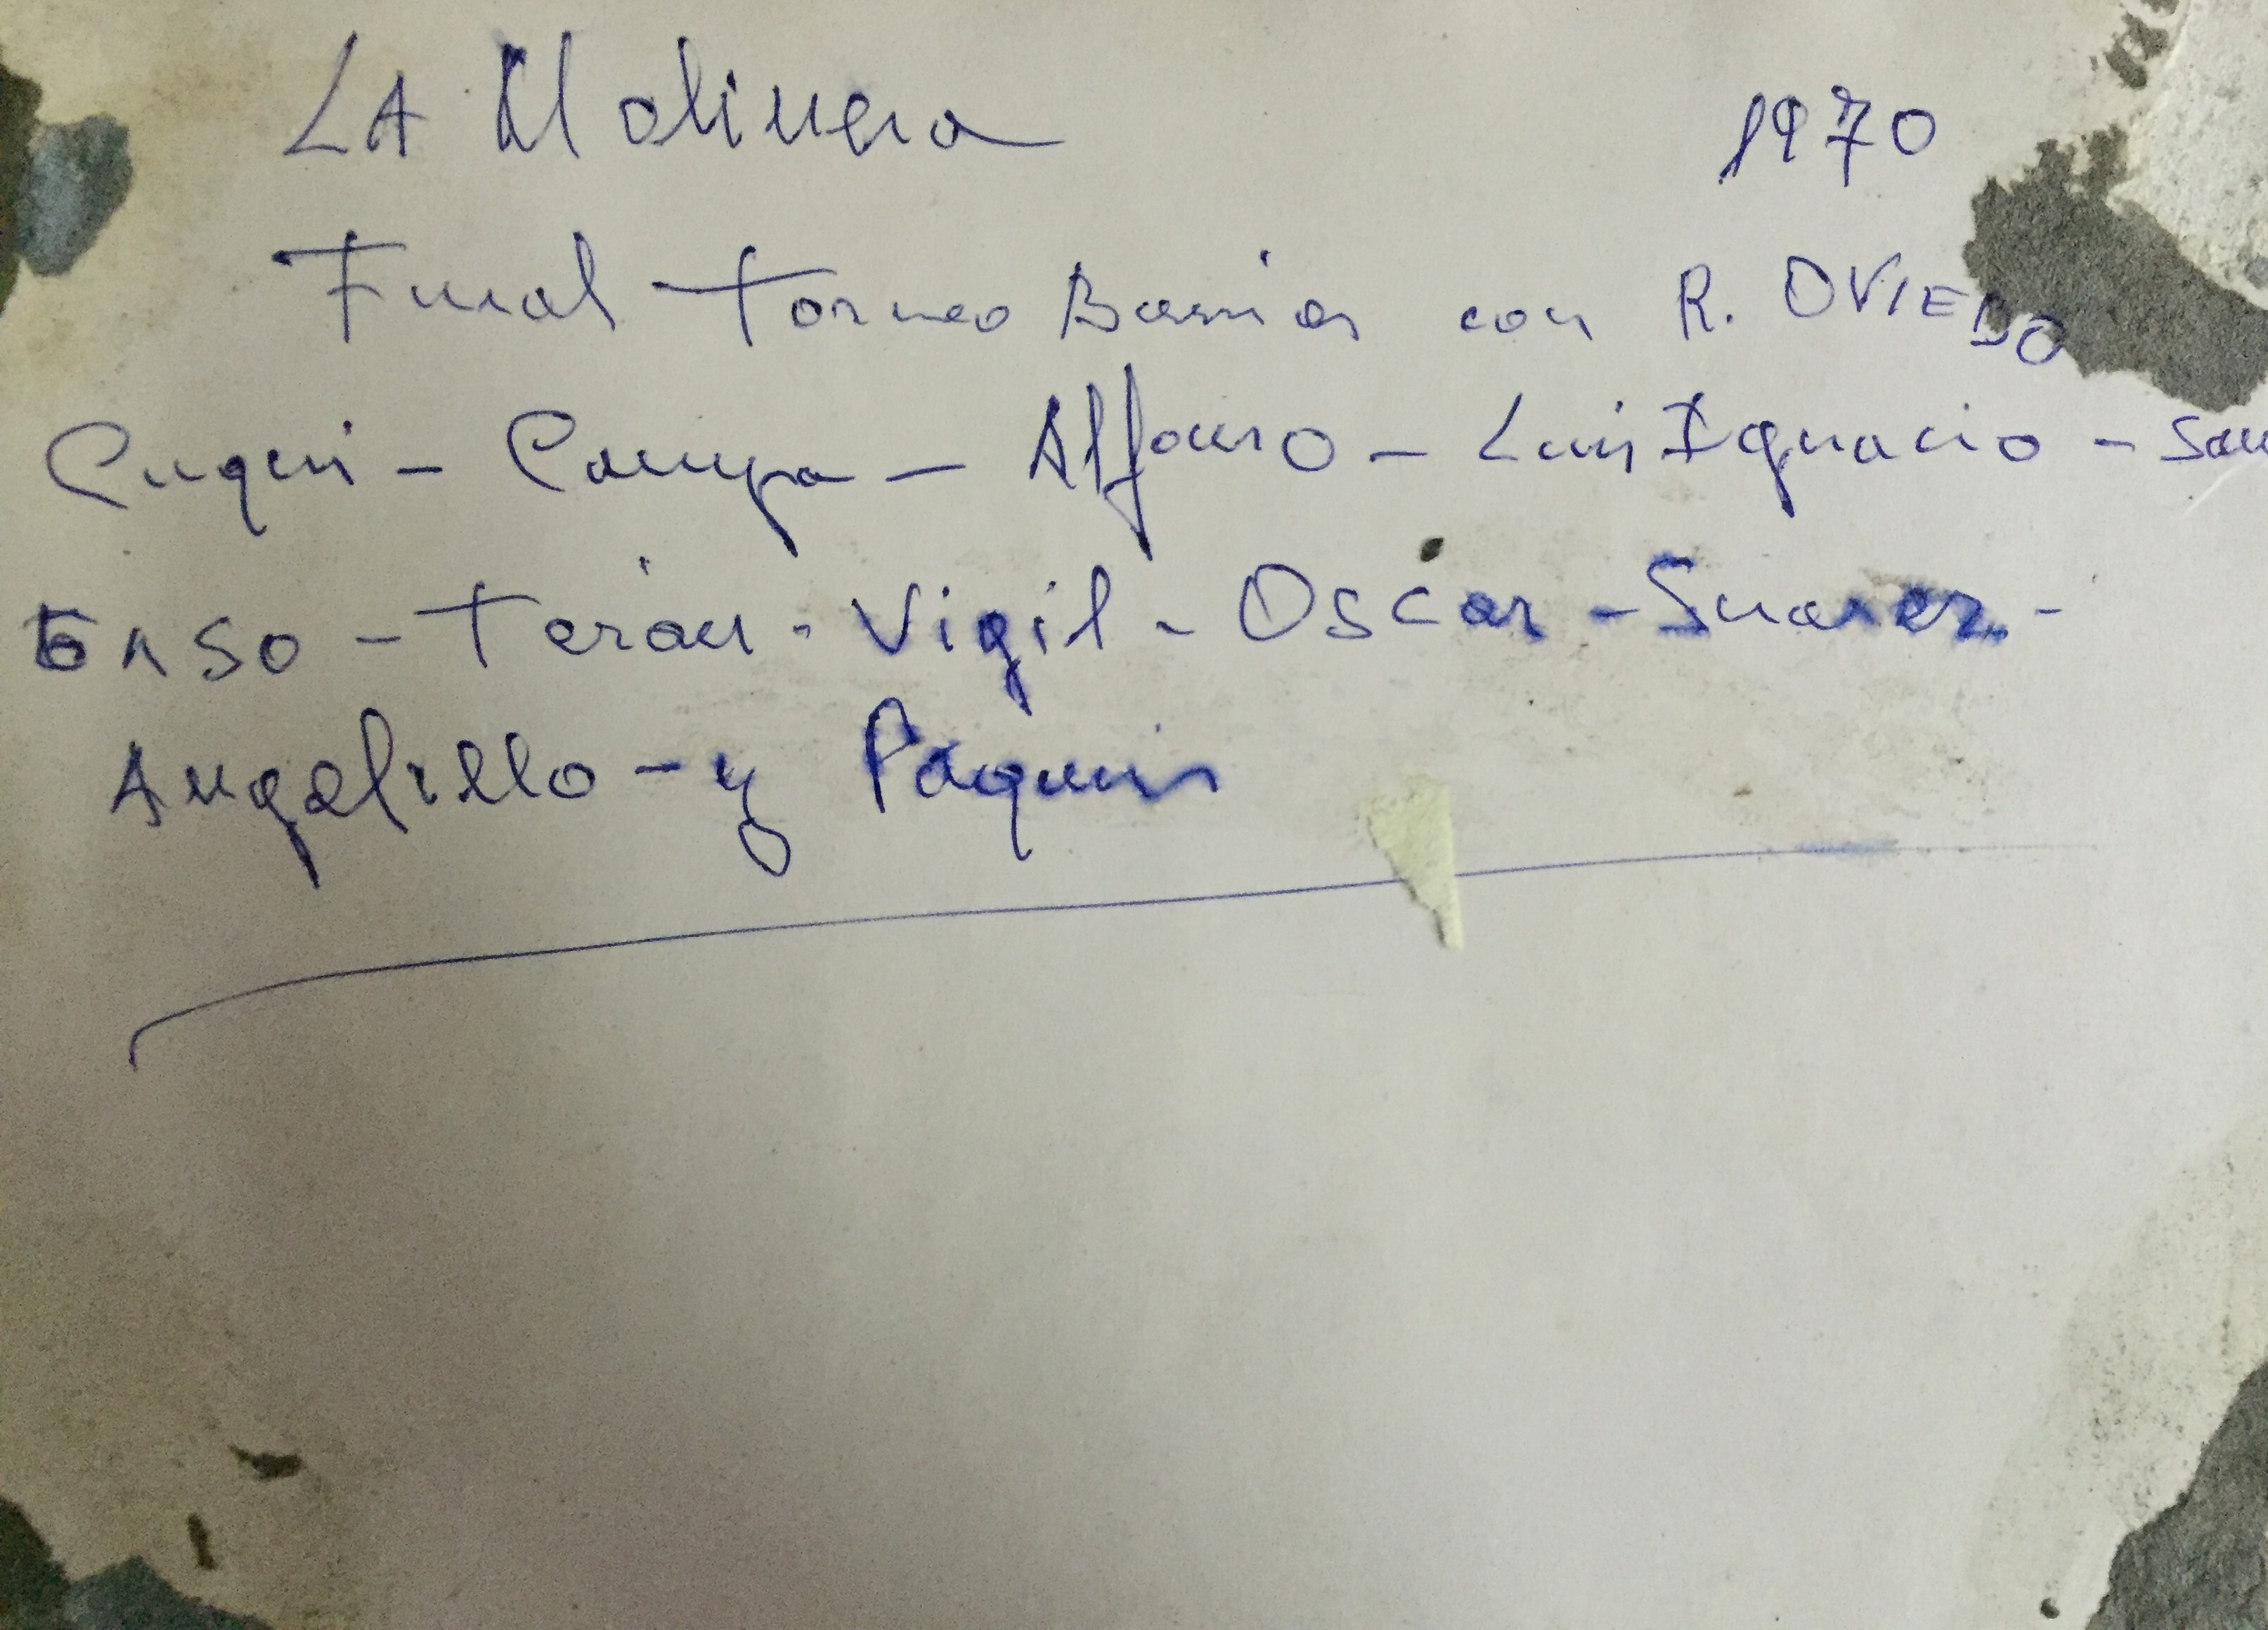 LA Molinera 1970
Final Torneo Barrios con R. OVIEDO
Cuqui - Campa - Alfonso - Luis Ignacio - San
Terán - Vigil - Oscar - Suarez -
Angelillo - y Paquin